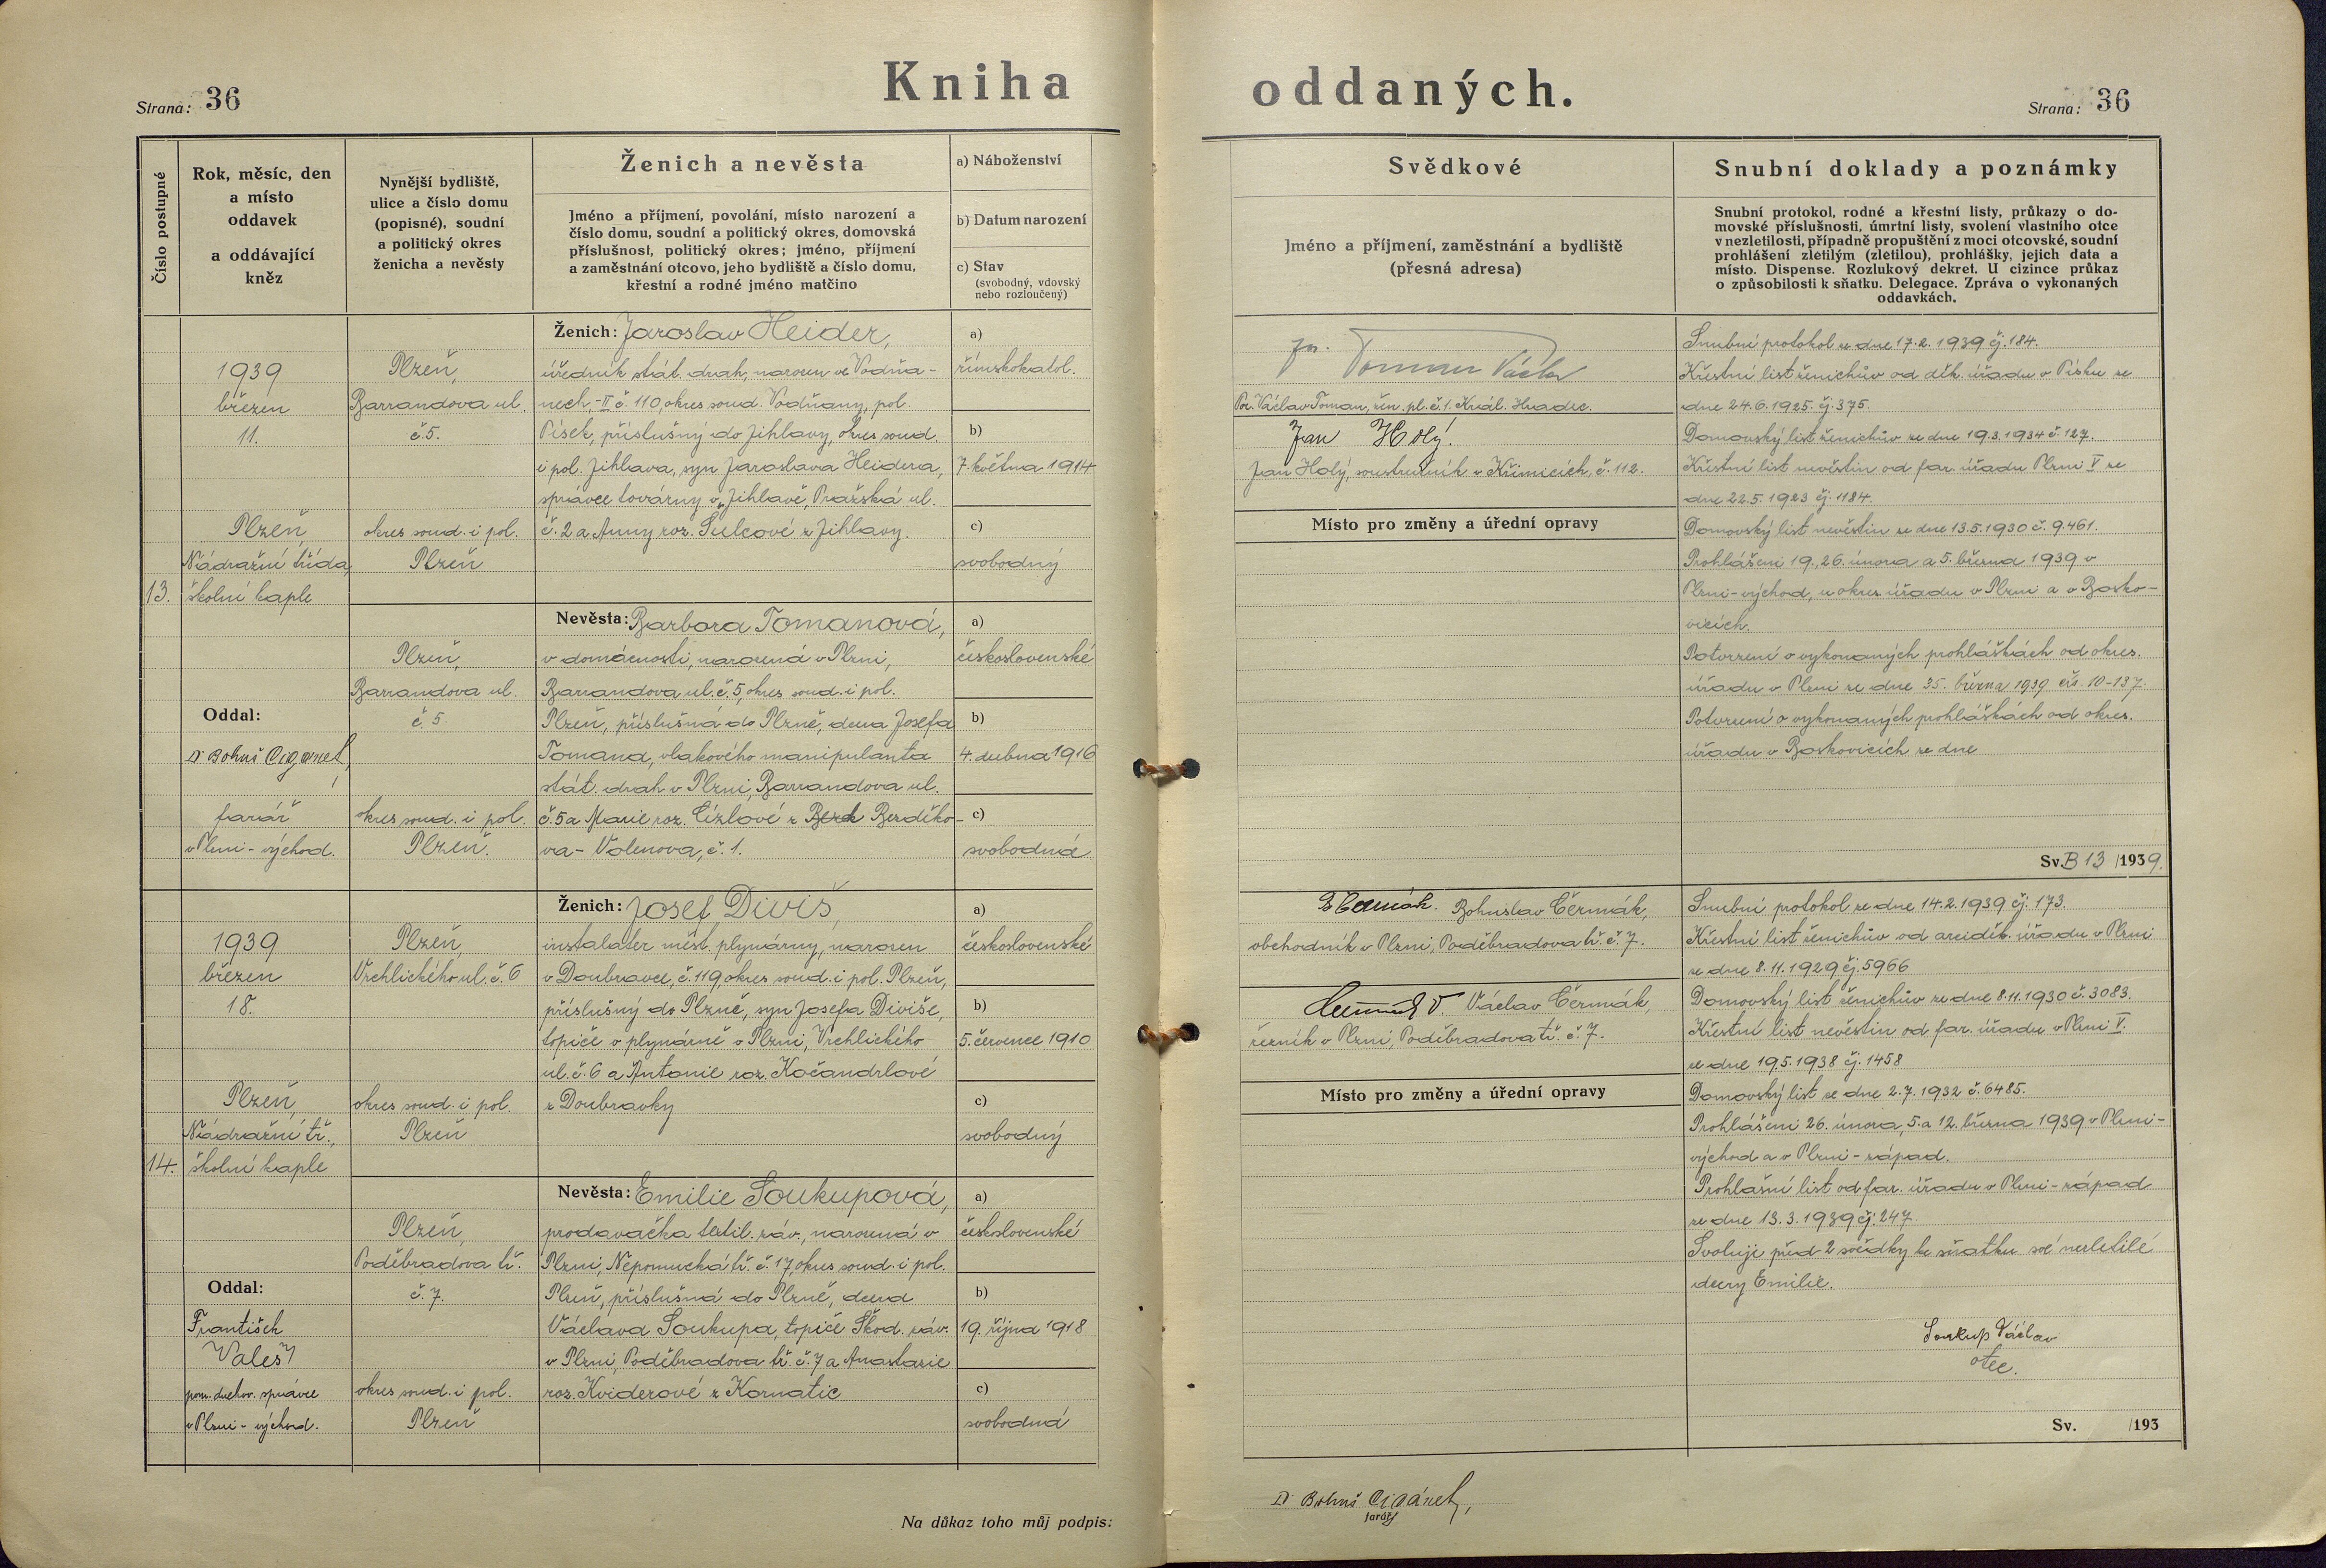 Strana: 36
Kniha
oddaných.
Strana: 36
Číslo postupné
Rok, měsíc, den
a místo
oddavek
a oddávající
kněz
Nynější bydliště,
ulice a číslo domu
(popisné), soudní
a politický okres
ženicha a nevěsty
Ženich a nevěsta
Jméno a příjmení, povolání, místo narození a
číslo domu, soudní a politický okres, domovská
příslušnost, politický okres; jméno, příjmení
a zaměstnání otcovo, jeho bydliště a číslo domu,
křestní a rodné jméno matčino
a) Náboženství
b) Datum narození
c) Stav
(svobodný, vdovský
nebo rozloučený)
Svědkové
Jméno a příjmení, zaměstnání a bydliště
(přesná adresa)
Snubní doklady a poznámky
Snubní protokol, rodné a křestní listy, průkazy o do-
movské příslušnosti, úmrtní listy, svolení vlastního otce
v nezletilosti, případně propuštění z moci otcovské, soudní
prohlášení zletilým (zletilou), prohlášky, jejich data a
místo. Dispense. Rozlukový dekret. U cizince průkaz
o způsobilosti k sňatku. Delegace. Zpráva o vykonaných
oddavkách.
13.
1939
březen
11.
Plzeň,
Nádražní třída,
školní kaple
Oddal:
Dr Bohuš Cigánek,
farář
v Plzni-východ.
Plzeň,
Barrandova ul.
č.5.
okres soud. i pol.
Plzeň
Plzeň,
Barrandova ul.
č.5
okres soud. i pol.
Plzeň.
Ženich: Jaroslav Heider,
úředník stát. drah, narozen ve Vodňa-
nech,-II č. 110, okres soud. Vodňany, pol.
Písek, příslušný do Jihlavy, okres soud.
i pol. Jihlava, syn Jaroslava Heidera,
správce továrny v Jihlavě, Pražská ul.
č. 2 a Anny roz. Šulcové z Jihlavy.
Nevěsta: Barbora Tomanová,
v domácnosti, narozená v Plzni,
Barrandova ul. č. 5, okres soud. i pol.
Plzeň, příslušná do Plzně, dcera Josefa
Tomana, vlakového manipulanta
stát. drah v Plzni, Barrandova ul.
č. 5 a Marie roz. Cízlové z Berdíko-
va- Volenova, č. 1.
a)
římskokatol.
b)
7. května 1914
c)
svobodný
a)
československé
b)
4. dubna 1916
c)
svobodná
Toman Václav
Por. Václav Toman, žen. pl. č. 1. Král. Hradec.
Jan Holý.
Jan Holý, soustružník v Křimicích, č. 112.
Místo pro změny a úřední opravy
Snubní protokol ze dne 17.2.1939 čj. 184.
Křestní list ženichův od děk. úřadu v Písku ze
dne 24.6.1925. čj. 375.
Domovský list ženichův ze dne 19.3.1934 č. 127.
Křestní list nevěstin od far. úřadu Plzni V ze
dne 22.5.1923 čj. 1184.
Domovský list nevěstin ze dne 13.5.1930 č. 9.461.
Prohlášeni 19., 26. února a 5. března 1939 v
Plzni-východ, u okres. úřadu v Plzni a v Bosko-
vicích.
Potvrzení o vykonaných prohláškách od okres.
úřadu v Plzni ze dne 35. března 1939 čís. 10-137.
Potvrzení o vykonaných prohláškách od okres.
úřadu v Boskovicích ze dne
Sv. B 13 /1939.
14.
1939
březen
18.
Plzeň,
Nádražní tř.,
školní kaple
Oddal:
František
Valeš
pom. duchov. správce
v Plzni-východ.
Plzeň,
Vrchlického ul. č. 6
okres soud. i pol.
Plzeň
Plzeň,
Poděbradova tř.
č. 7.
okres soud. i pol.
Plzeň
Ženich: Josef Diviš,
instalatér měst. plynárny, narozen
v Doubravce, č. 119, okres soud. i pol. Plzeň,
příslušný do Plzně, syn Josefa Diviše,
topiče v plynárně v Plzni, Vrchlického
ul. č. 6 a Antonie roz. Kočandrlové
z Doubravky
Nevěsta: Emilie Soukupová,
prodavačka textil. záv., narozená v
Plzni, Nepomucká tř. č. 17, okres soud. i pol.
Plzeň, příslušná do Plzně, dcera
Václava Soukupa, topiče Škod. záv.
v Plzni, Poděbradova tř. č. 7 a Anastazie
roz. Kviderové z Kornatic
a)
československé
b)
5. července 1910
c)
svobodný
a)
československé
b)
19. října 1918
c)
svobodná
B Čermák. Bohuslav Čermák,
obchodník v Plzni, Poděbradova tř. č. 7.
Čermák V. Václav Čermák,
řezník v Plzni, Poděbradova tř. č. 7.
Místo pro změny a úřední opravy
Snubní protokol ze dne 14.2.1939 čj. 173.
Křestní list ženichův od arciděk. úřadu v Plzni
ze dne 8.11.1929 čj. 5966
Domovský list ženichův ze dne 8.11.1930 č. 3083.
Křestní list nevěstin od far. úřadu v Plzni V.
ze dne 19.5.1938 čj. 1458
Domovský list ze dne 2.7.1932 č. 6485.
Prohlášeni 26. února, 5. a 12. března 1939 v Plzni-
východ a v Plzni-západ.
Prohlašní list od far. úřadu v Plzni-západ
ze dne 13.3.1939 čj. 247.
Svoluji před 2 svědky ke sňatku své nezletilé
dcery Emilie.
Soukup Václav
otec.
Sv. /193
Na důkaz toho můj podpis:
Dr Bohuš Cigánek,
farář